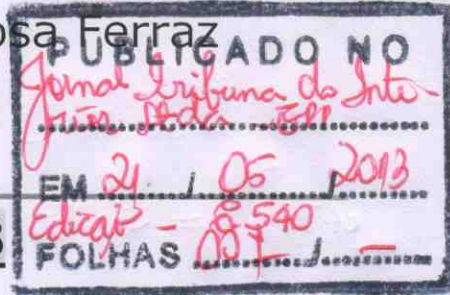 osa Ferraz
PUBLICADO NO
Jornal Tribuna do Inte-
rior Ltda
EM 21 / 05 / 2013
Edição - 8540
FOLHAS 07 / -